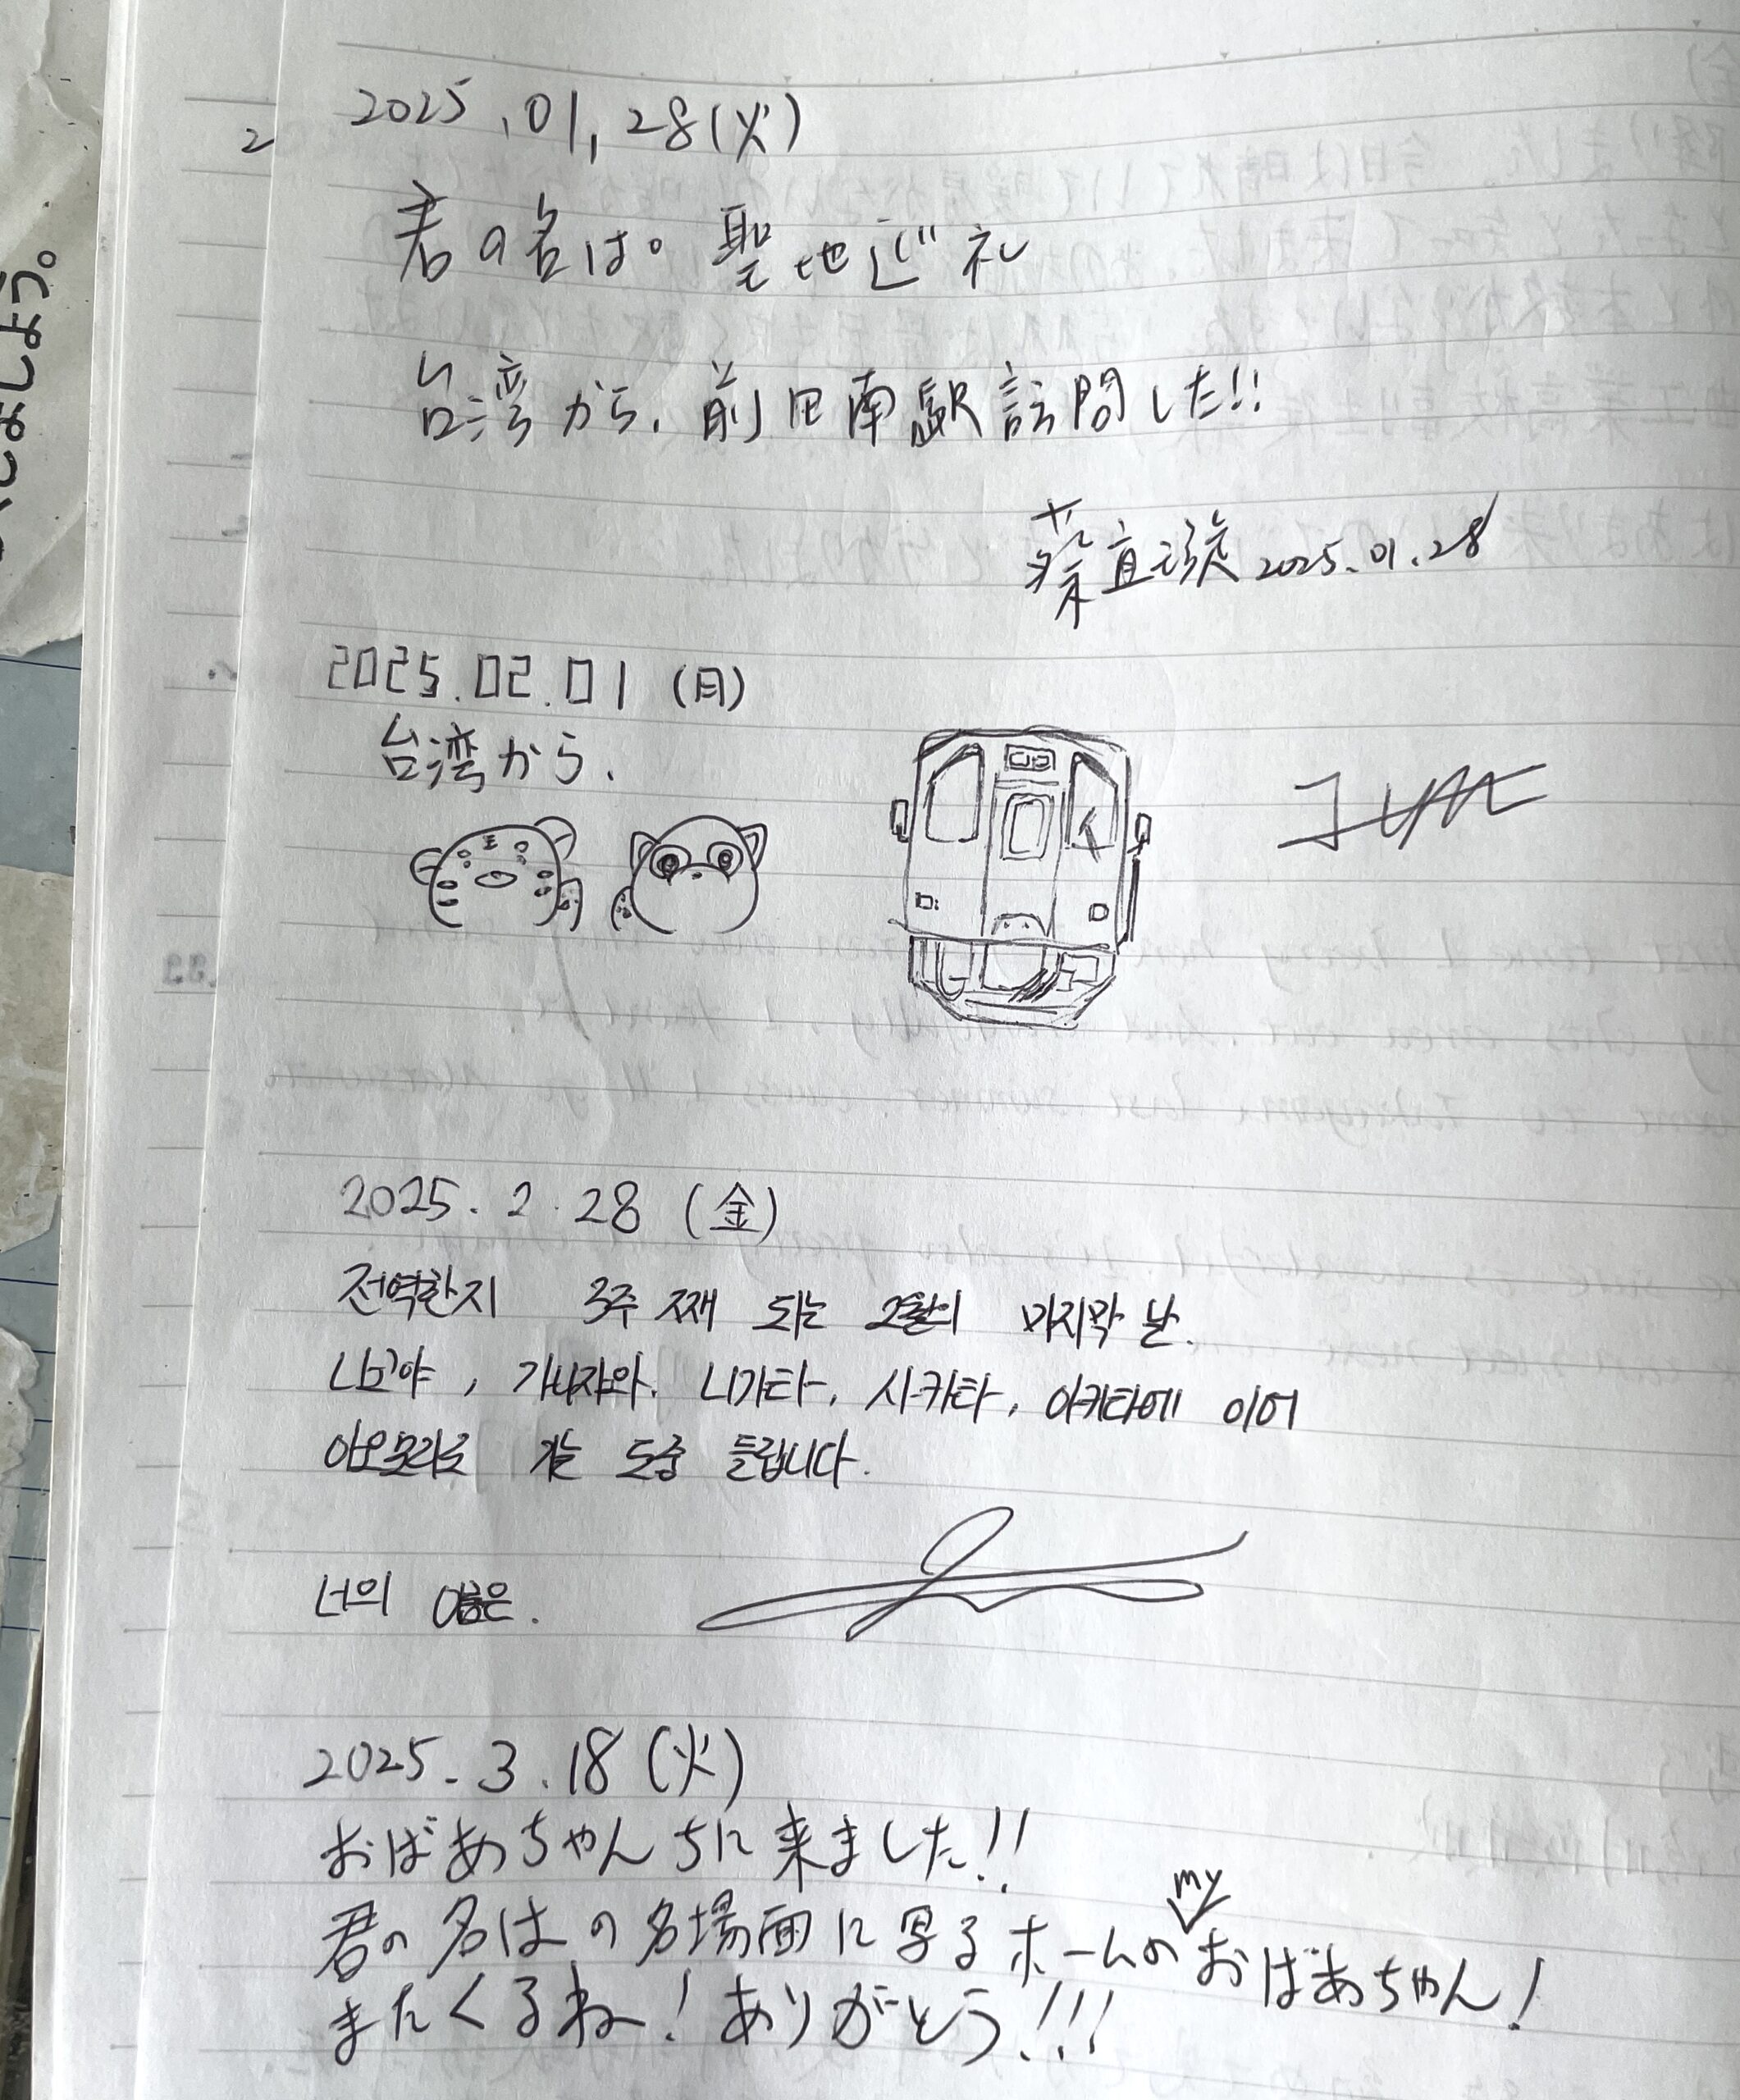 2025.01.28(火)
君の名は。聖地巡礼
台湾から、前田南駅訪問した!!
2025.01.28
2025.02.01 (月)
台湾から、
2025.2.28 (金)
전역한지 3주 째 되는 2월의 마지막 날.
나고야, 가나자와, 니가타, 사카타, 아키타에 이어
아오모리로 가는 도중 들립니다.
너의 이름은.
2025.3.18(火)
おばあちゃんちに来ました!!
君の名はの名場面に写るホームのmyおばあちゃん!
またくるねー!ありがとう!!!
ましょう。